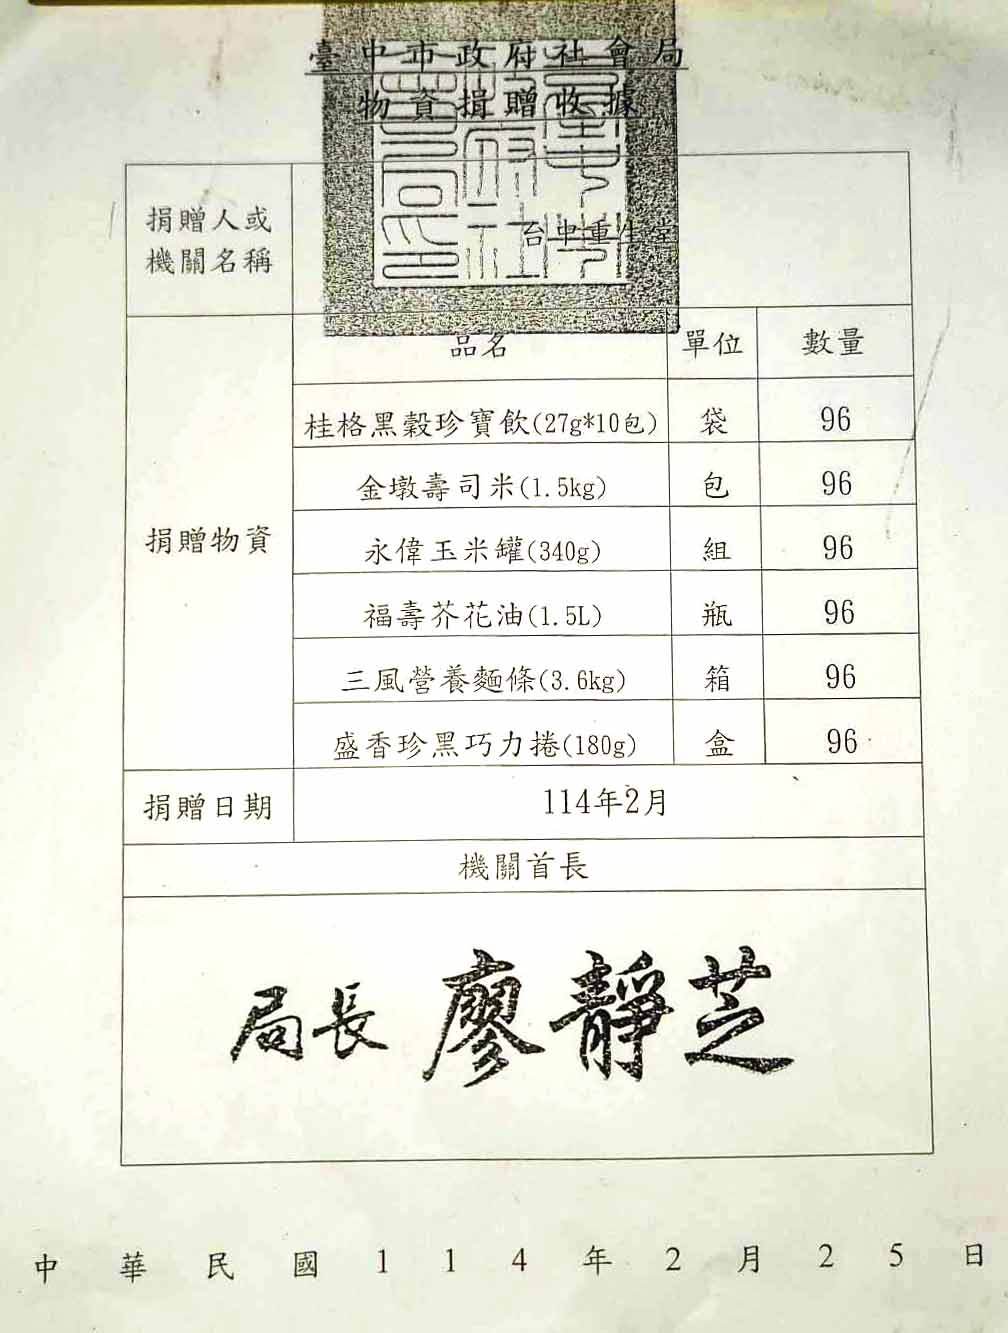 臺中市政府社會局
物資捐贈收據
捐贈人或
機關名稱
台中重生堂
捐贈物資
品名 單位 數量
桂格黑穀珍寶飲(27g*10包) 袋 96
金墩壽司米(1.5kg) 包 96
永偉玉米罐(340g) 組 96
福壽芥花油(1.5L) 瓶 96
三風營養麵條(3.6kg) 箱 96
盛香珍黑巧力捲(180g) 盒 96
捐贈日期 114年2月
機關首長
局長 廖靜芝
中華民國114年2月25日